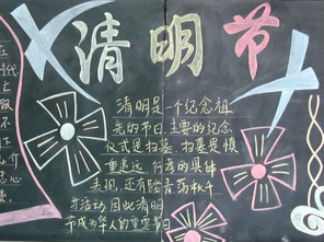 清明节
清明是一个纪念祖
先的节日,主要的纪念
仪式是扫墓,扫墓是慎
重追远、行孝的具体
表现,还有踏青荡秋千
等活动,因此清明
节成为华人的重要节日